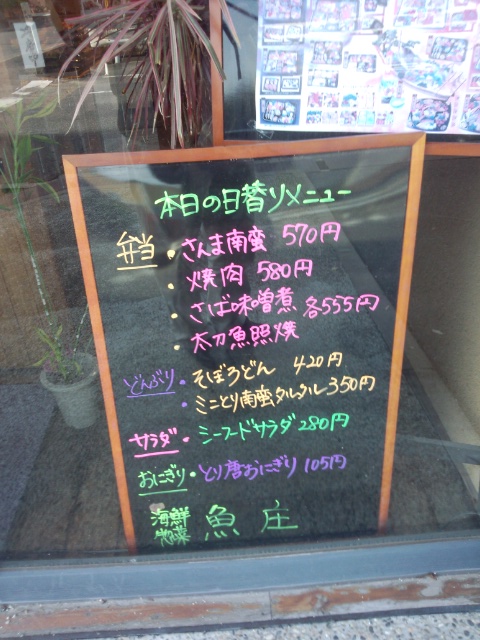 本日の日替りメニュー
弁当・さんま南蛮 570円
・焼肉 580円
・さば味噌煮 各555円
・太刀魚照焼
どんぶり・そぼろどん 420円
・ミニとり南蛮タルタル 350円
サラダ・シーフードサラダ 280円
おにぎり・とり唐おにぎり 105円
海鮮
惣菜 魚庄